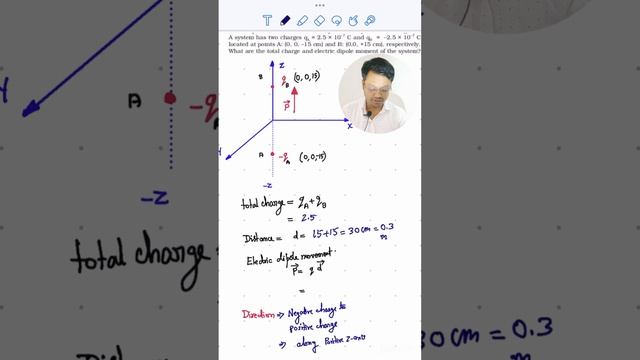 A system has two charges qA = 2.5 × 10⁻⁷ C and qB = -2.5 × 10⁻⁷ C
located at points A: (0, 0, -15 cm) and B: (0,0, +15 cm), respectively.
What are the total charge and electric dipole moment of the system?
Z
B qB (0,0,15)
P
X
Y
A -qA (0,0,-15)
-Z
total charge = qA + qB
= 2.5
Distance = d = 15+15 = 30 cm = 0.3
m
Electric dipole movement
P = q d
=
Direction ⇒ Negative charge to
positive charge
⇒ along Positive Z-axis
Y
A
-q
-Z
total charge
30 cm = 0.3
m